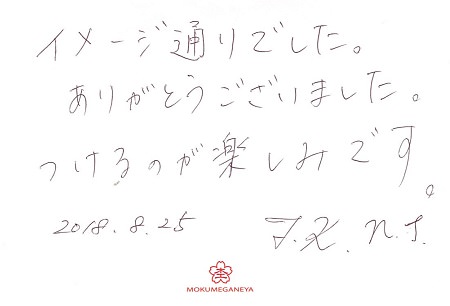 イメージ通りでした。
ありがとうございました。
つけるのが楽しみです。
2018.8.25 J.K. N.S.
MOKUMEGANEYA